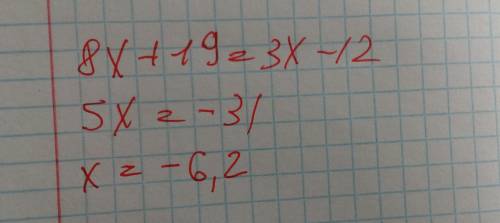 8x+19=3x-12
5x = -31
x = -6,2